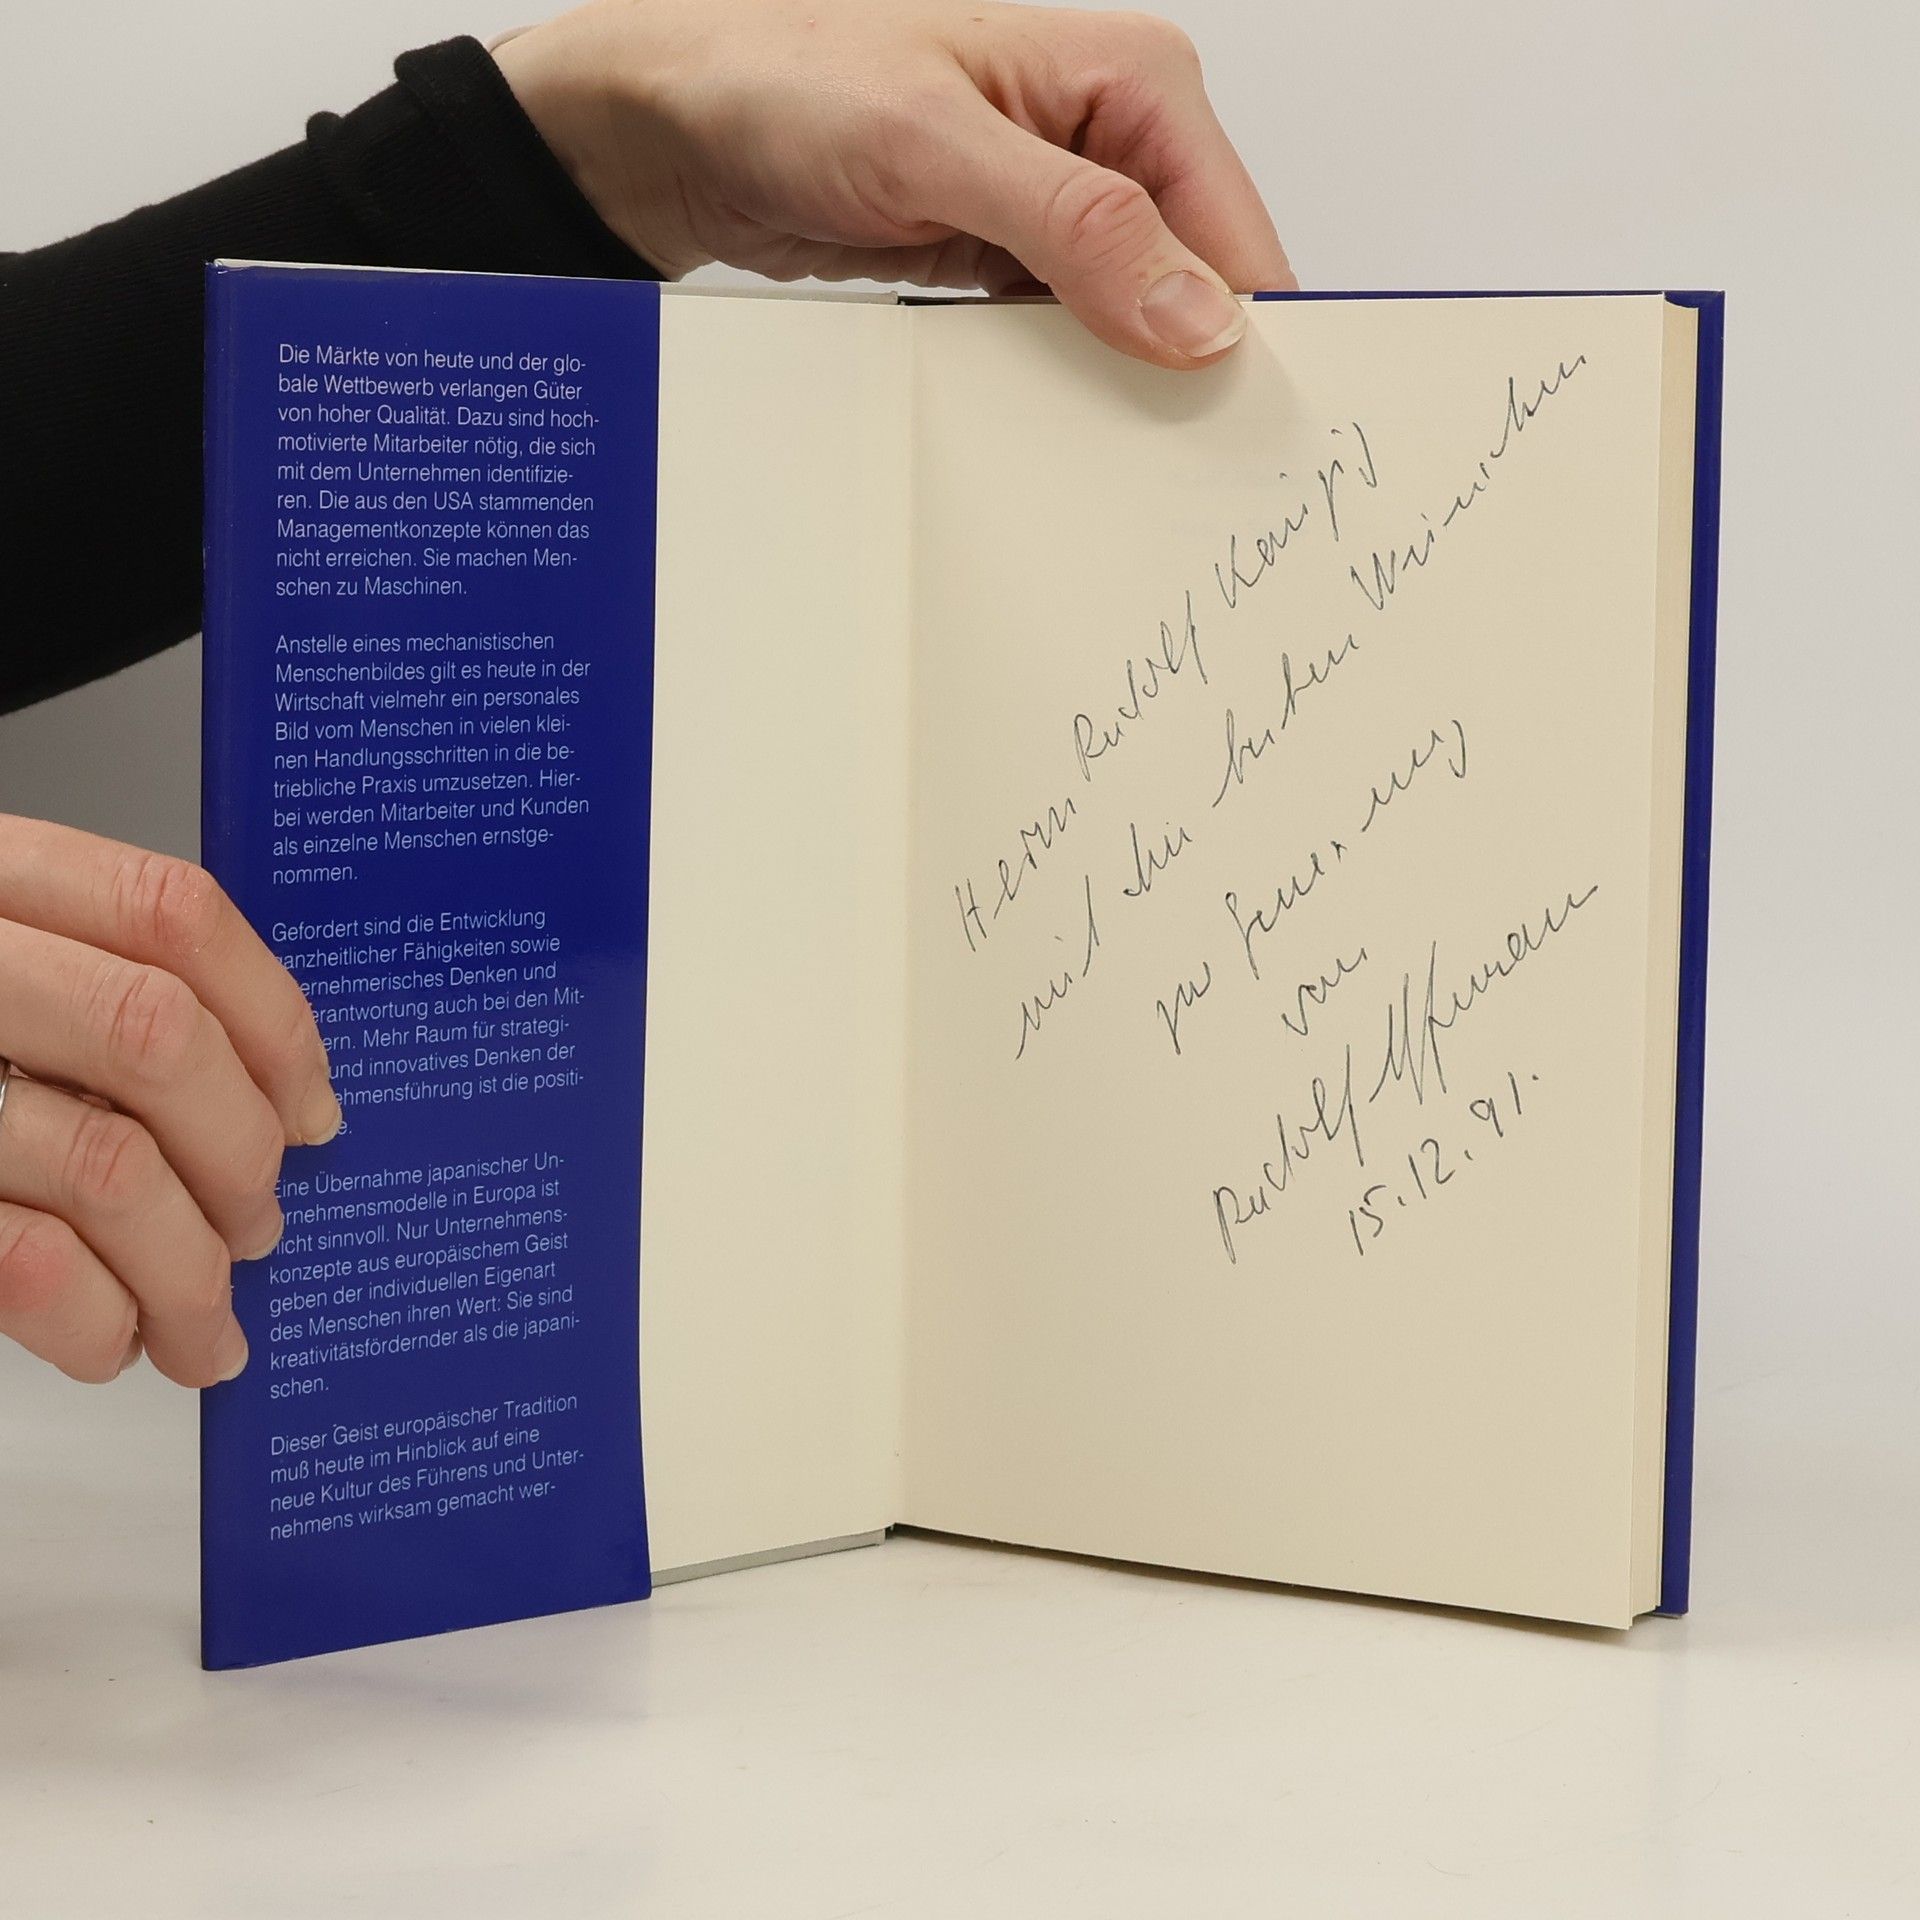 Die Märkte von heute und der glo-
bale Wettbewerb verlangen Güter
von hoher Qualität. Dazu sind hoch-
motivierte Mitarbeiter nötig, die sich
mit dem Unternehmen identifizie-
ren. Die aus den USA stammenden
Managementkonzepte können das
nicht erreichen. Sie machen Men-
schen zu Maschinen.
Anstelle eines mechanistischen
Menschenbildes gilt es heute in der
Wirtschaft vielmehr ein personales
Bild vom Menschen in vielen klei-
nen Handlungsschritten in die be-
triebliche Praxis umzusetzen. Hier-
bei werden Mitarbeiter und Kunden
als einzelne Menschen ernstge-
nommen.
Gefordert sind die Entwicklung
anzheitlicher Fähigkeiten sowie
ernehmerisches Denken und
erantwortung auch bei den Mit-
ern. Mehr Raum für strategi-
und innovatives Denken der
ehmensführung ist die positi-
e.
Eine Übernahme japanischer Un-
ernehmensmodelle in Europa ist
nicht sinnvoll. Nur Unternehmens-
konzepte aus europäischem Geist
geben der individuellen Eigenart
des Menschen ihren Wert: Sie sind
kreativitätsfördernder als die japani-
schen.
Dieser Geist europäischer Tradition
muß heute im Hinblick auf eine
neue Kultur des Führens und Unter-
nehmens wirksam gemacht wer-
Herrn Rudolf
mit den besten Wünschen
zur
von
Rudolf
15.12.91.